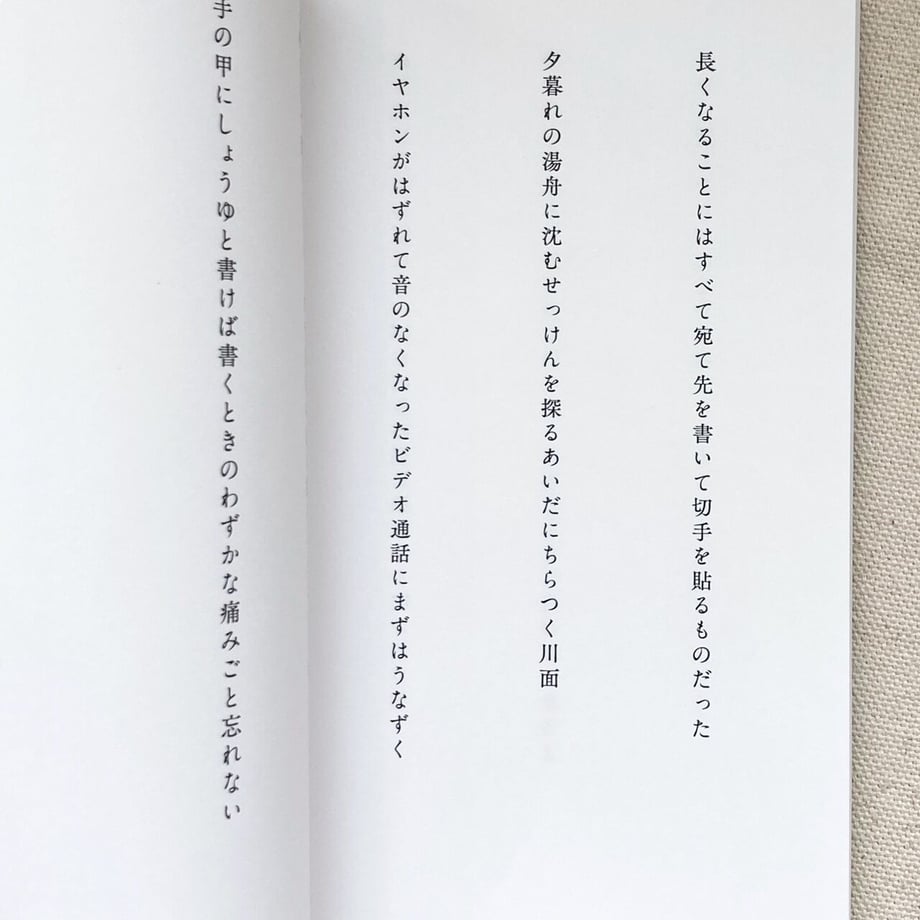 長くなることにはすべて宛て先を書いて切手を貼るものだった
夕暮れの湯舟に沈むせっけんを探るあいだにちらつく川面
イヤホンがはずれて音のなくなったビデオ通話にまずはうなずく
手の甲にしょうゆと書けば書くときのわずかな痛みごと忘れない